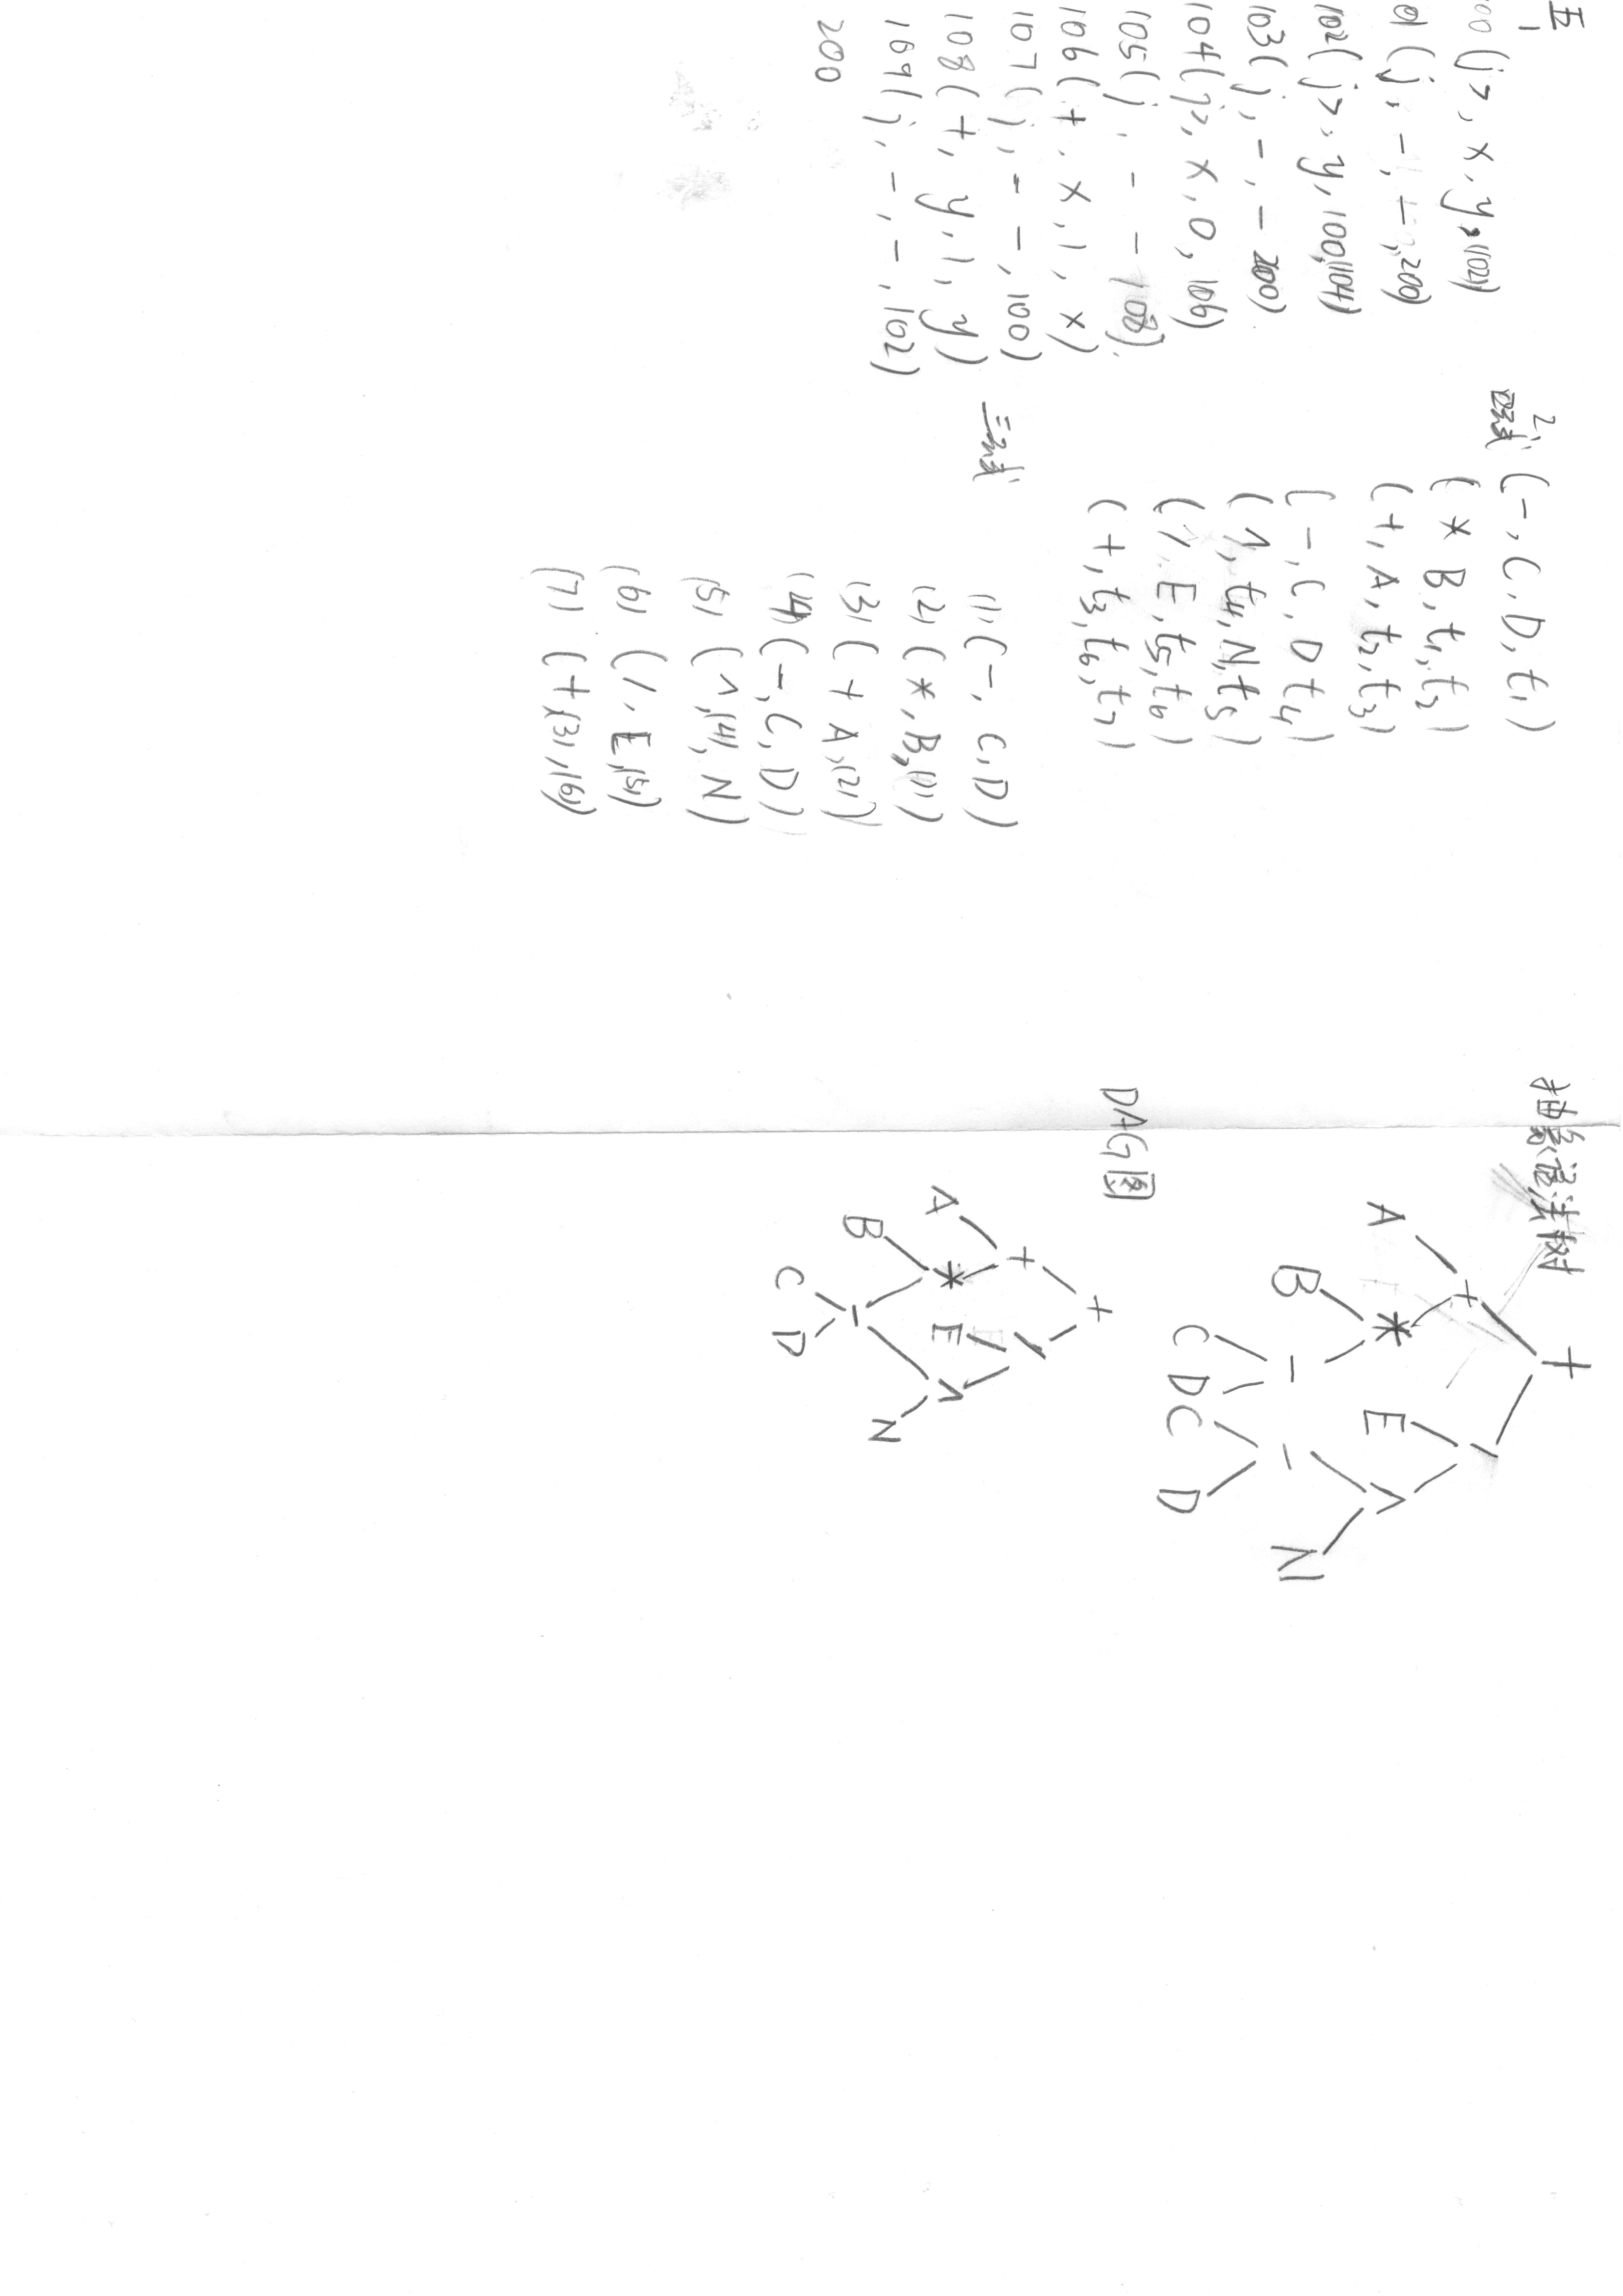 五
1
00 (j>, x, y, (102))
01 (j, -, -, 200)
102 (j>, y, 100, (104)
103 (j, -, - 200)
104 (j>, x, 0, 106)
105 (j, - - 108)
106 (+, x, 1, x)
107 (j, - -, 100)
108 (+, y, 1, y)
109 (j, -, -, 102)
200
2、
四元式 (-, C, D, t1)
(* B, t1, t2)
(+, A, t2, t3)
(-, C, D t4)
(^, t4, N, t5)
(/, E, t5, t6)
(+, t3, t6, t7)
三元式 (1) (-, C, D)
(2) (*, B, (1))
(3) (+ A, (2))
(4) (-, C, D)
(5) (^, (4), N)
(6) (/, E, (5))
(7) (+, (3), (6))
抽象语法树
+
+ /
A * E ^
B - - N
C D C D
DAG图
+
+ /
A * E ^
B - N
C D